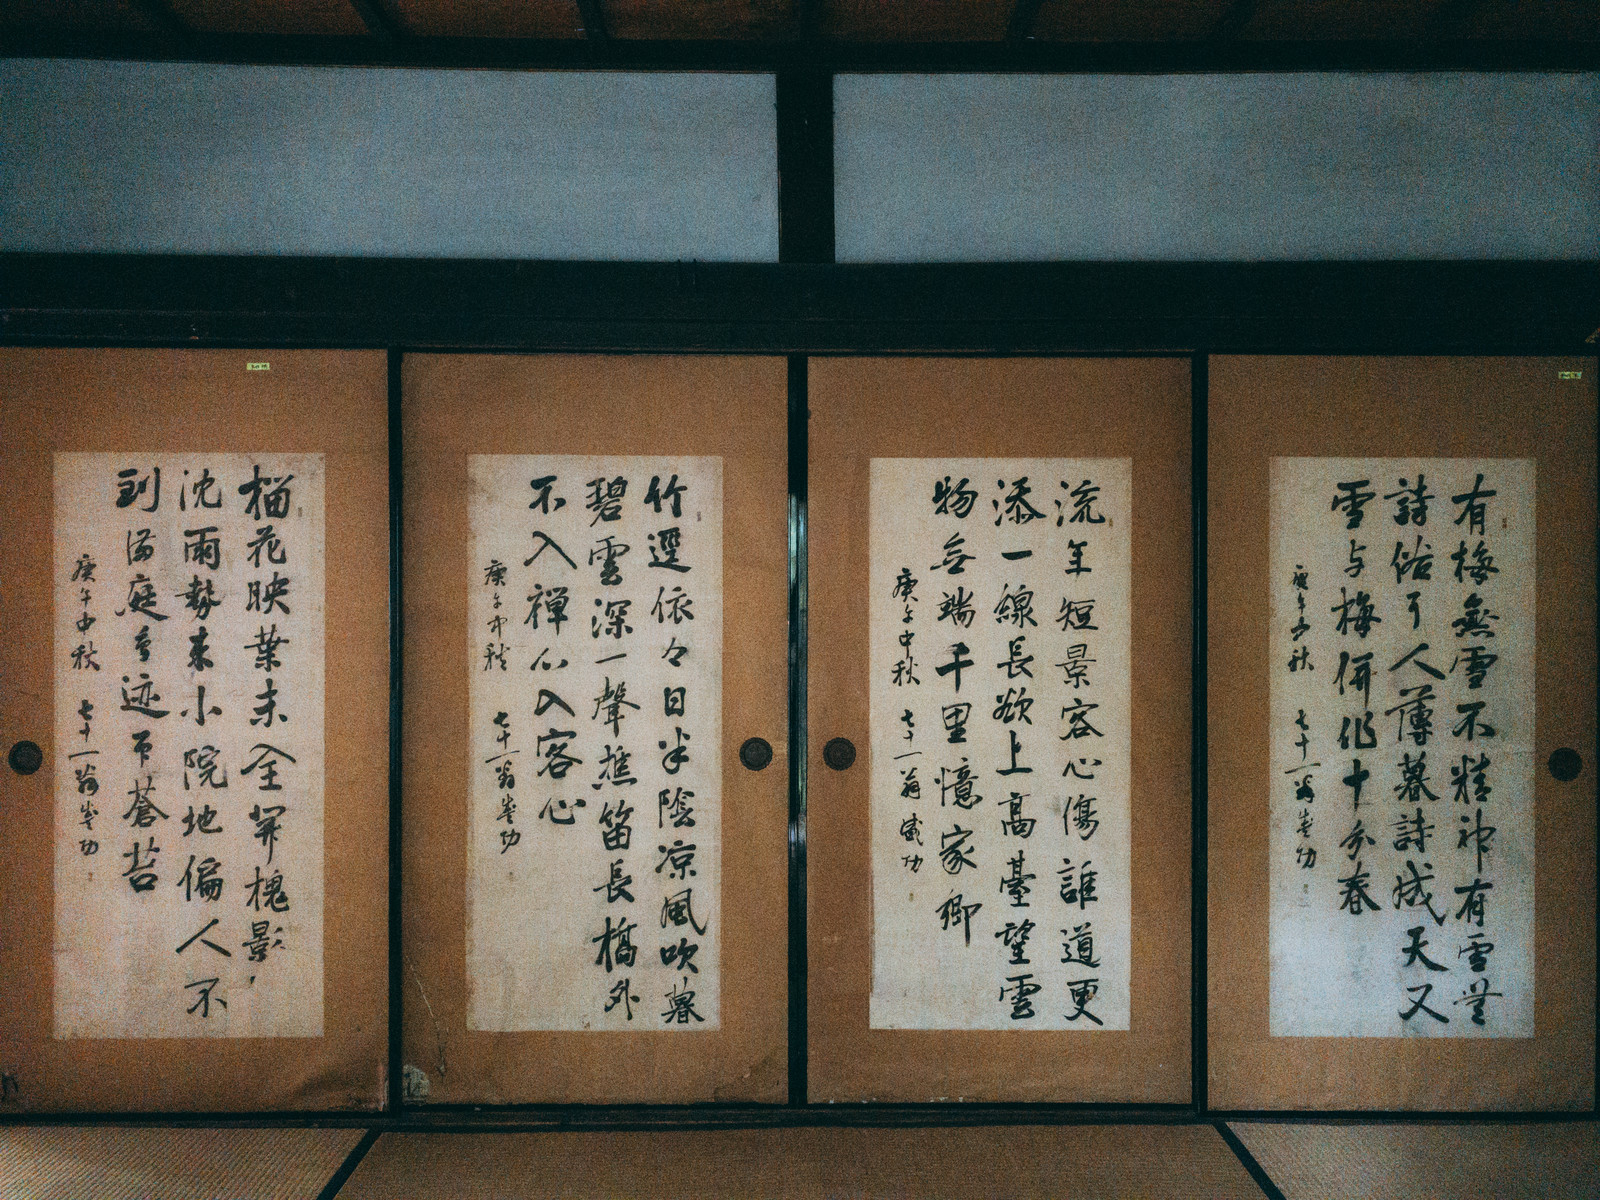 有梅無雪不精神有雪無
詩俗了人薄暮詩成天又
雪与梅併作十分春
庚午中秋 七十一翁
流年短景客心傷誰道更
添一線長欲上高臺望雲
物無端千里憶家鄉
庚午中秋 七十一翁
竹逕依々日半陰凉風吹暮
碧雲深一聲樵笛長橋外
不入禅心入客心
庚午中秋 七十一翁
榴花映葉未全開槐影
沈雨勢来小院地偏人不
到満庭鳥迹印蒼苔
庚午中秋 七十一翁